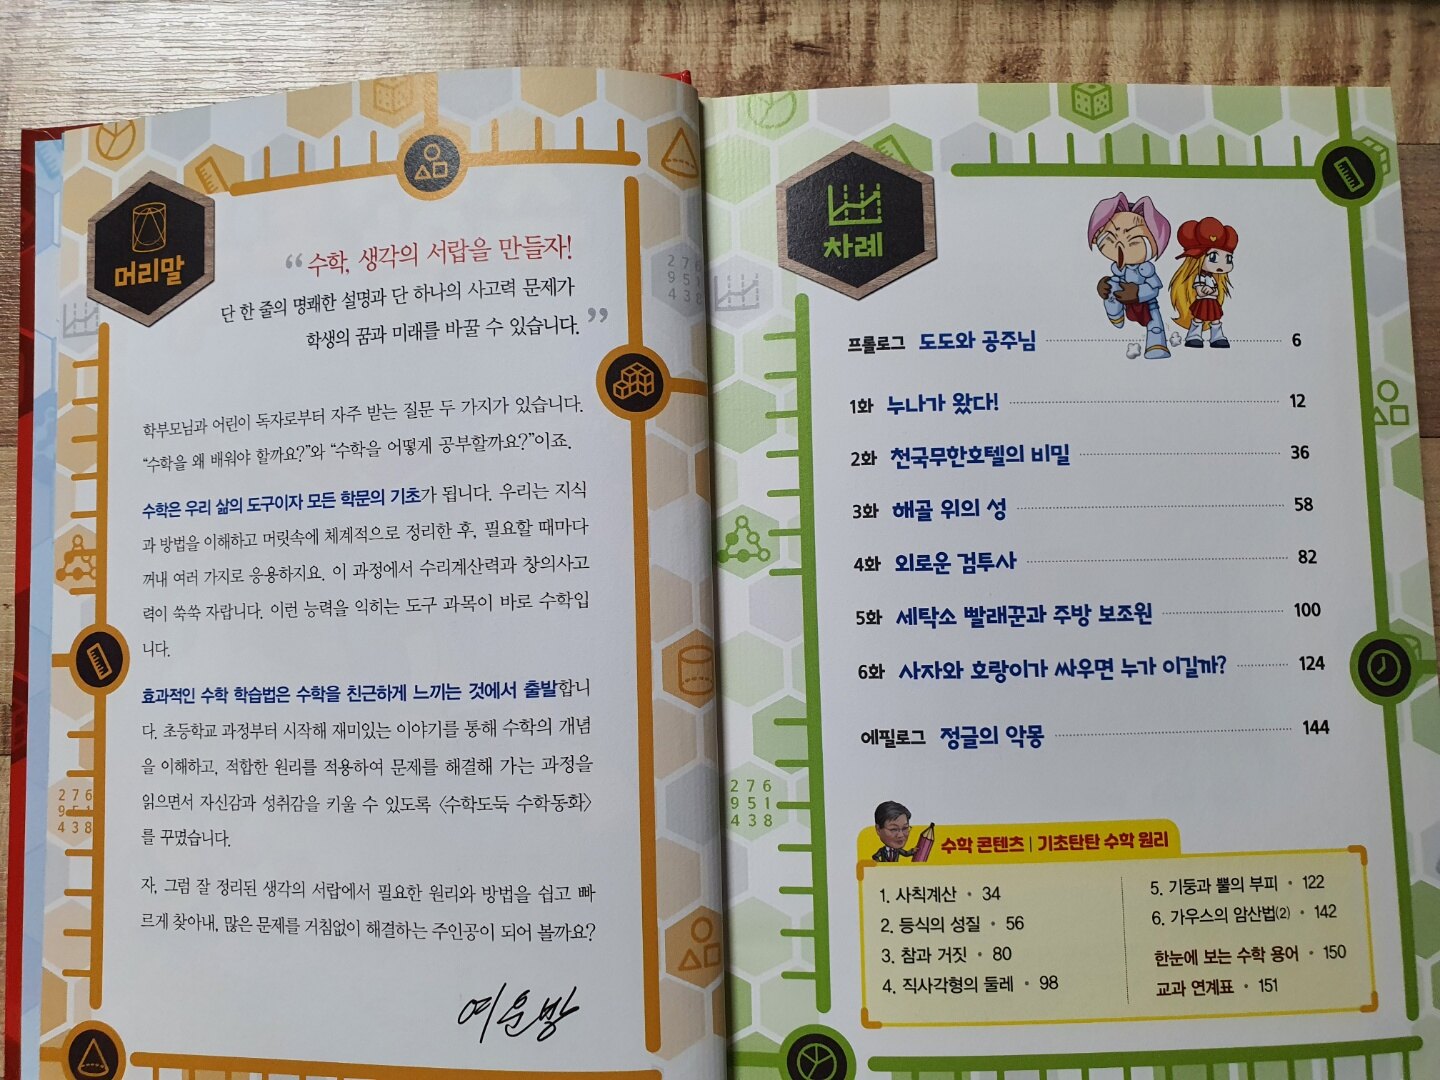 머리말
“수학, 생각의 서랍을 만들자!
단 한 줄의 명쾌한 설명과 단 하나의 사고력 문제가
학생의 꿈과 미래를 바꿀 수 있습니다.”
학부모님과 어린이 독자로부터 자주 받는 질문 두 가지가 있습니다.
“수학을 왜 배워야 할까요?”와 “수학을 어떻게 공부할까요?”이죠.
수학은 우리 삶의 도구이자 모든 학문의 기초가 됩니다. 우리는 지식
과 방법을 이해하고 머릿속에 체계적으로 정리한 후, 필요할 때마다
꺼내 여러 가지로 응용하지요. 이 과정에서 수리계산력과 창의사고
력이 쑥쑥 자랍니다. 이런 능력을 익히는 도구 과목이 바로 수학입
니다.
효과적인 수학 학습법은 수학을 친근하게 느끼는 것에서 출발합니
다. 초등학교 과정부터 시작해 재미있는 이야기를 통해 수학의 개념
을 이해하고, 적합한 원리를 적용하여 문제를 해결해 가는 과정을
읽으면서 자신감과 성취감을 키울 수 있도록 〈수학도둑 수학동화〉
를 꾸몄습니다.
자, 그럼 잘 정리된 생각의 서랍에서 필요한 원리와 방법을 쉽고 빠
르게 찾아내, 많은 문제를 거침없이 해결하는 주인공이 되어 볼까요?
여운방
276
951
438
276
951
438
차례
프롤로그 도도와 공주님 6
1화 누나가 왔다! 12
2화 천국무한호텔의 비밀 36
3화 해골 위의 성 58
4화 외로운 검투사 82
5화 세탁소 빨래꾼과 주방 보조원 100
6화 사자와 호랑이가 싸우면 누가 이길까? 124
에필로그 정글의 악몽 144
276
951
438
수학 콘텐츠 | 기초탄탄 수학 원리
1. 사칙계산 • 34
2. 등식의 성질 • 56
3. 참과 거짓 • 80
4. 직사각형의 둘레 • 98
5. 기둥과 뿔의 부피 • 122
6. 가우스의 암산법(2) • 142
한눈에 보는 수학 용어 • 150
교과 연계표 • 151